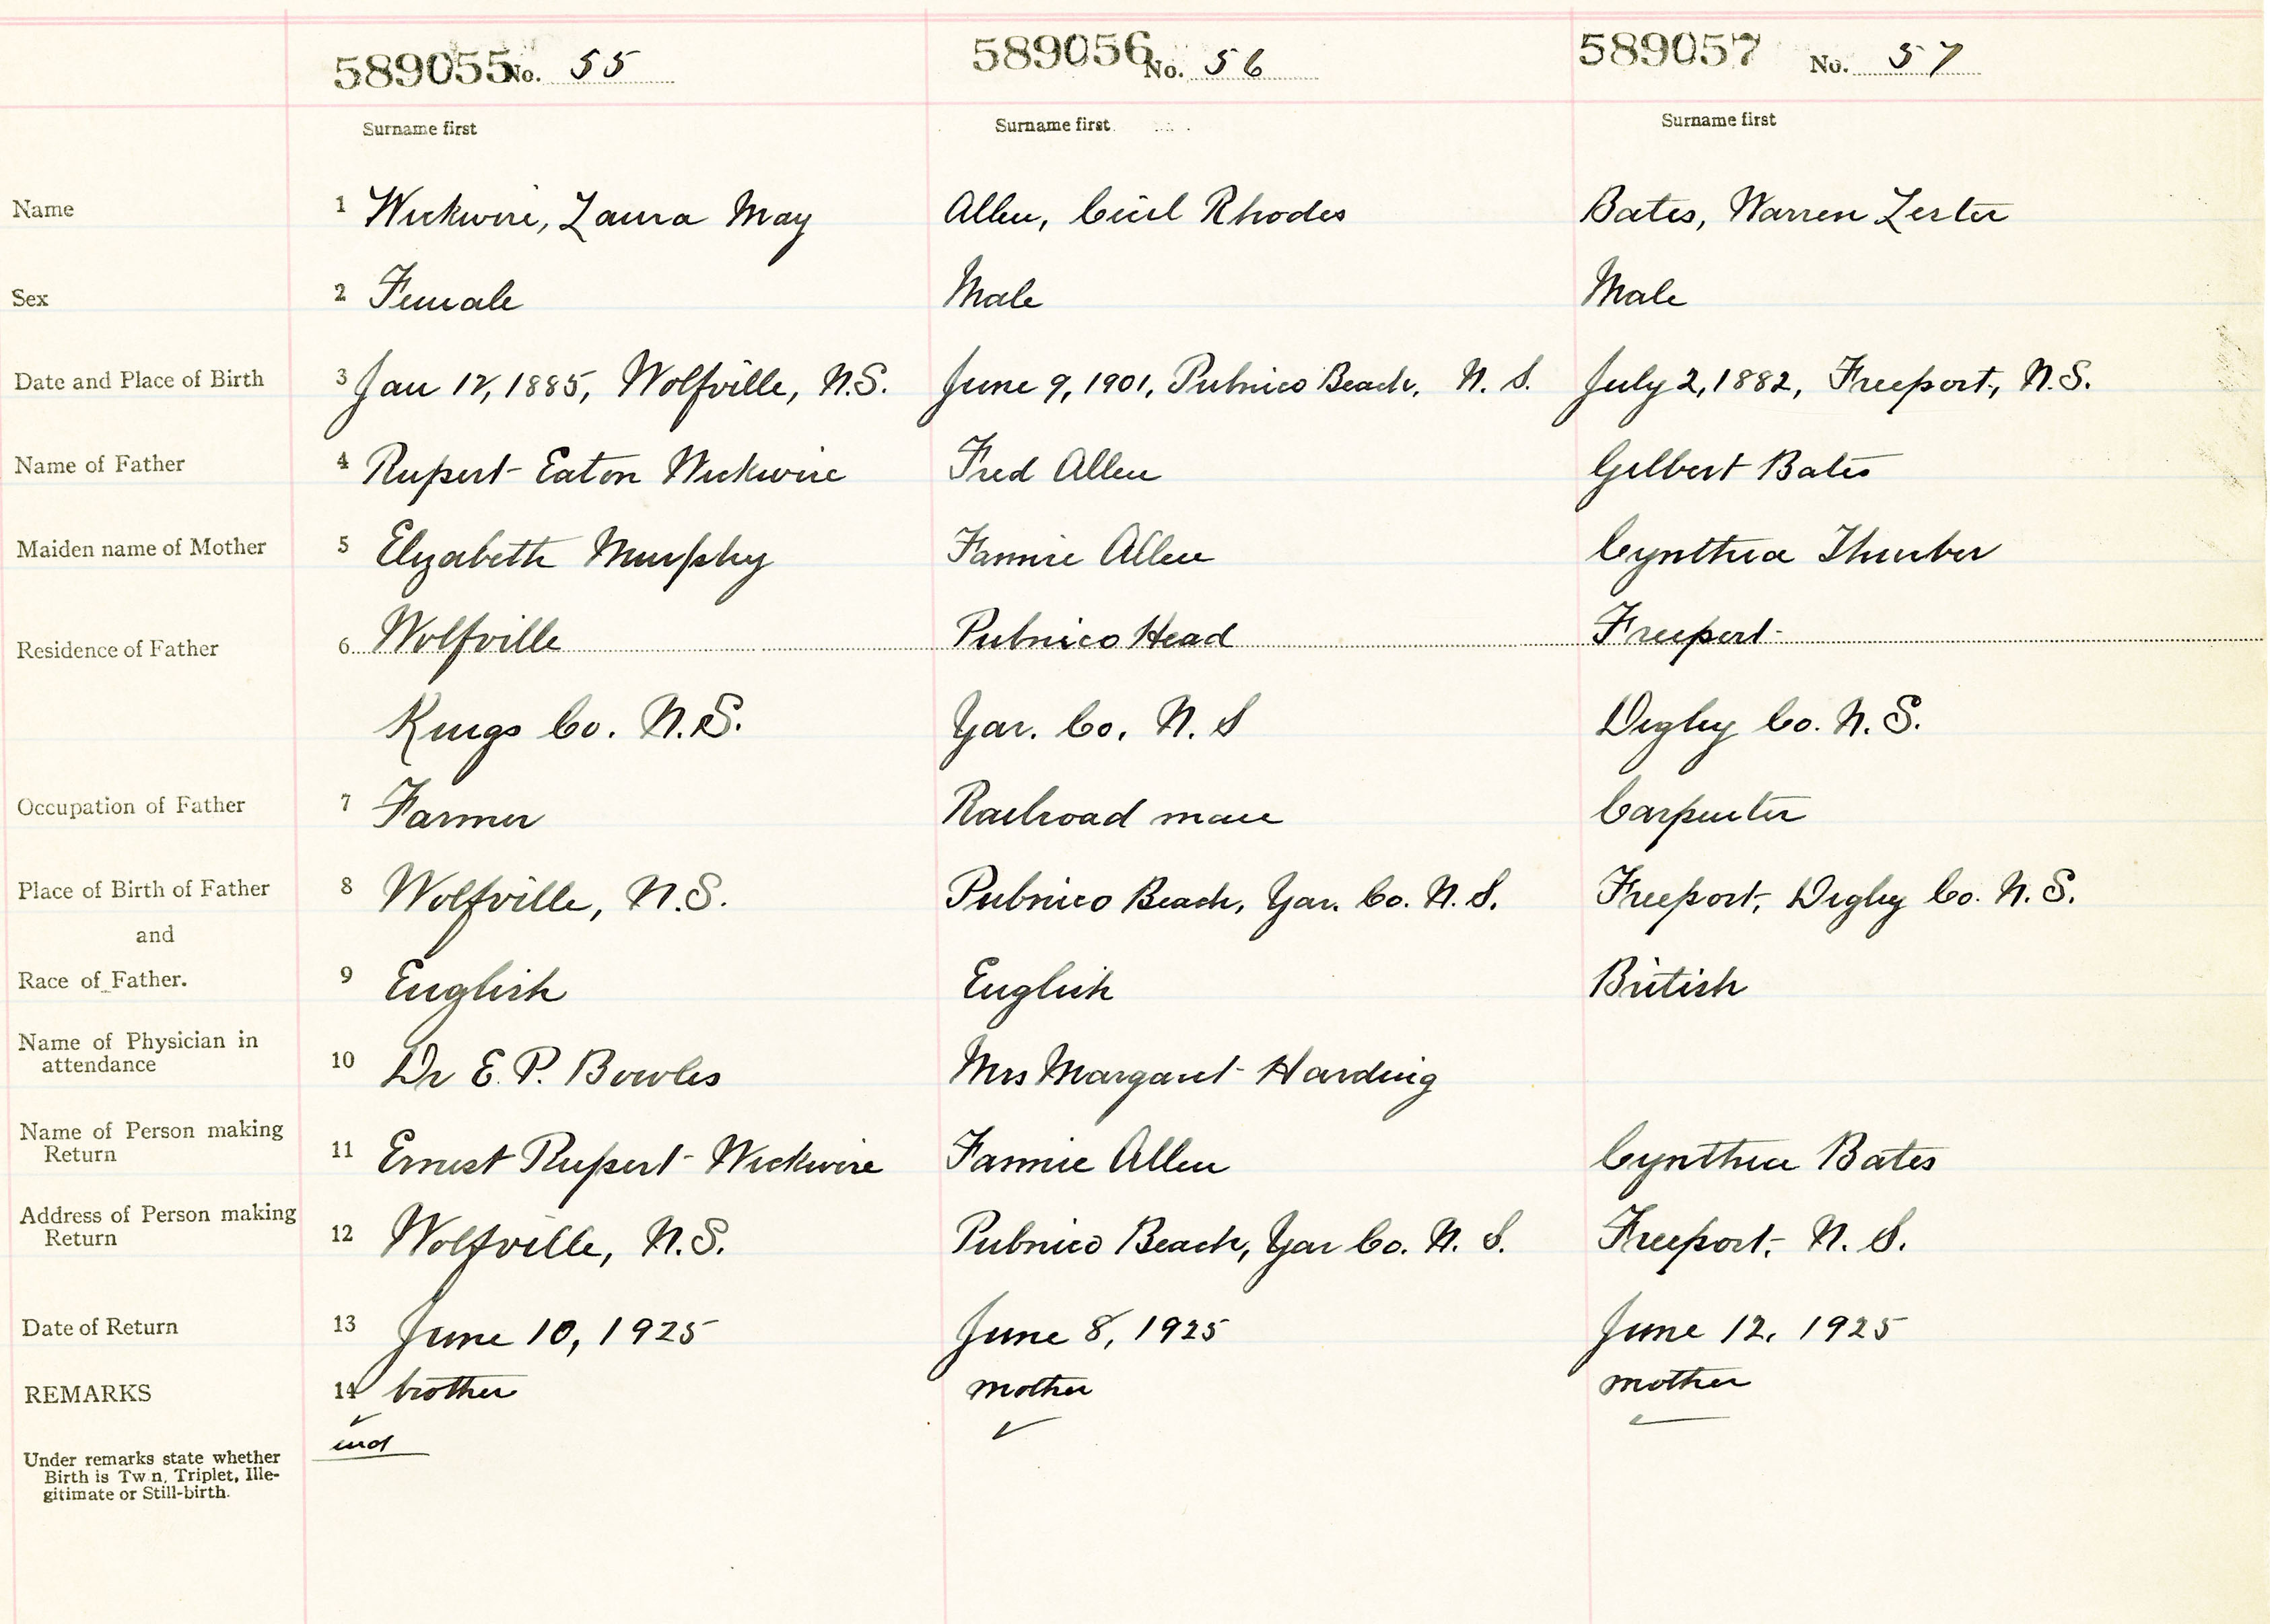 589055 No. 55 589056 No. 56 589057 No. 57
Surname first Surname first Surname first
Name 1 Wickwire, Laura May Allen, Cecil Rhodes Bates, Warren Lester
Sex 2 Female Male Male
Date and Place of Birth 3 Jan 12, 1885, Wolfville, N.S. June 9, 1901, Pubnico Beach, N. S. July 2, 1882, Freeport, N.S.
Name of Father 4 Rupert Eaton Wickwire Fred Allen Gilbert Bates
Maiden name of Mother 5 Elizabeth Murphy Fannie Allen Cynthia Thurber
Residence of Father 6 Wolfville Pubnico Head Freeport
Kings Co. N.S. Yar. Co. N. S Digby Co. N. S.
Occupation of Father 7 Farmer Railroad man Carpenter
Place of Birth of Father 8 Wolfville, N.S. Pubnico Beach, Yar. Co. N. S. Freeport, Digby Co. N. S.
and
Race of Father. 9 English English British
Name of Physician in
attendance 10 Dr E. P. Bowles Mrs Margaret Harding
Name of Person making
Return 11 Ernest Rupert Wickwire Fannie Allen Cynthia Bates
Address of Person making
Return 12 Wolfville, N.S. Pubnico Beach, Yar Co. N. S. Freeport, N. S.
Date of Return 13 June 10, 1925 June 8, 1925 June 12, 1925
REMARKS 14 brother mother mother
Under remarks state whether
Birth is Tw n, Triplet, Ille-
gitimate or Still-birth.